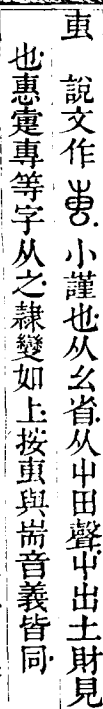 叀 說文作.小謹也.从幺省.从屮田聲.屮出土財見
也.惠疐專等字从之.隷變如上.按叀與耑音義皆同.